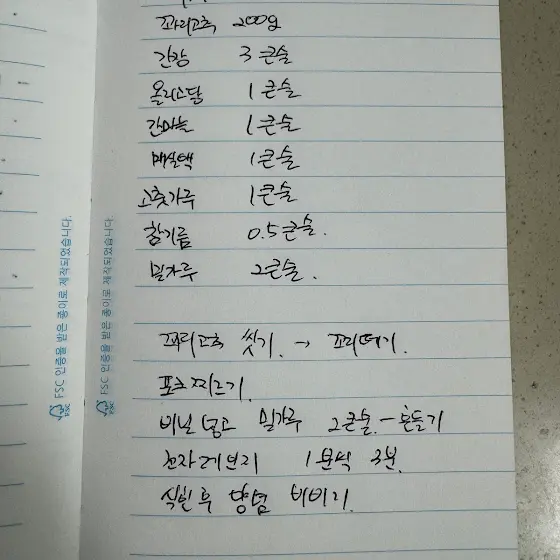 꽈리고추 200g
간장 3 큰술
올리고당 1 큰술
간마늘 1 큰술
매실액 1 큰술
고춧가루 1 큰술
참기름 0.5 큰술.
밀가루 2큰술.
꽈리고추 씻기. → 꼬리떼기.
포크찌르기.
비닐 넣고 밀가루 2큰술 - 흔들기
전자레인지 1분씩 3분.
식힌 후 양념 비비기.
FSC 인증을 받은 종이로 제작되었습니다.
FSC 인증을 받은 종이로 제작되었습니다.